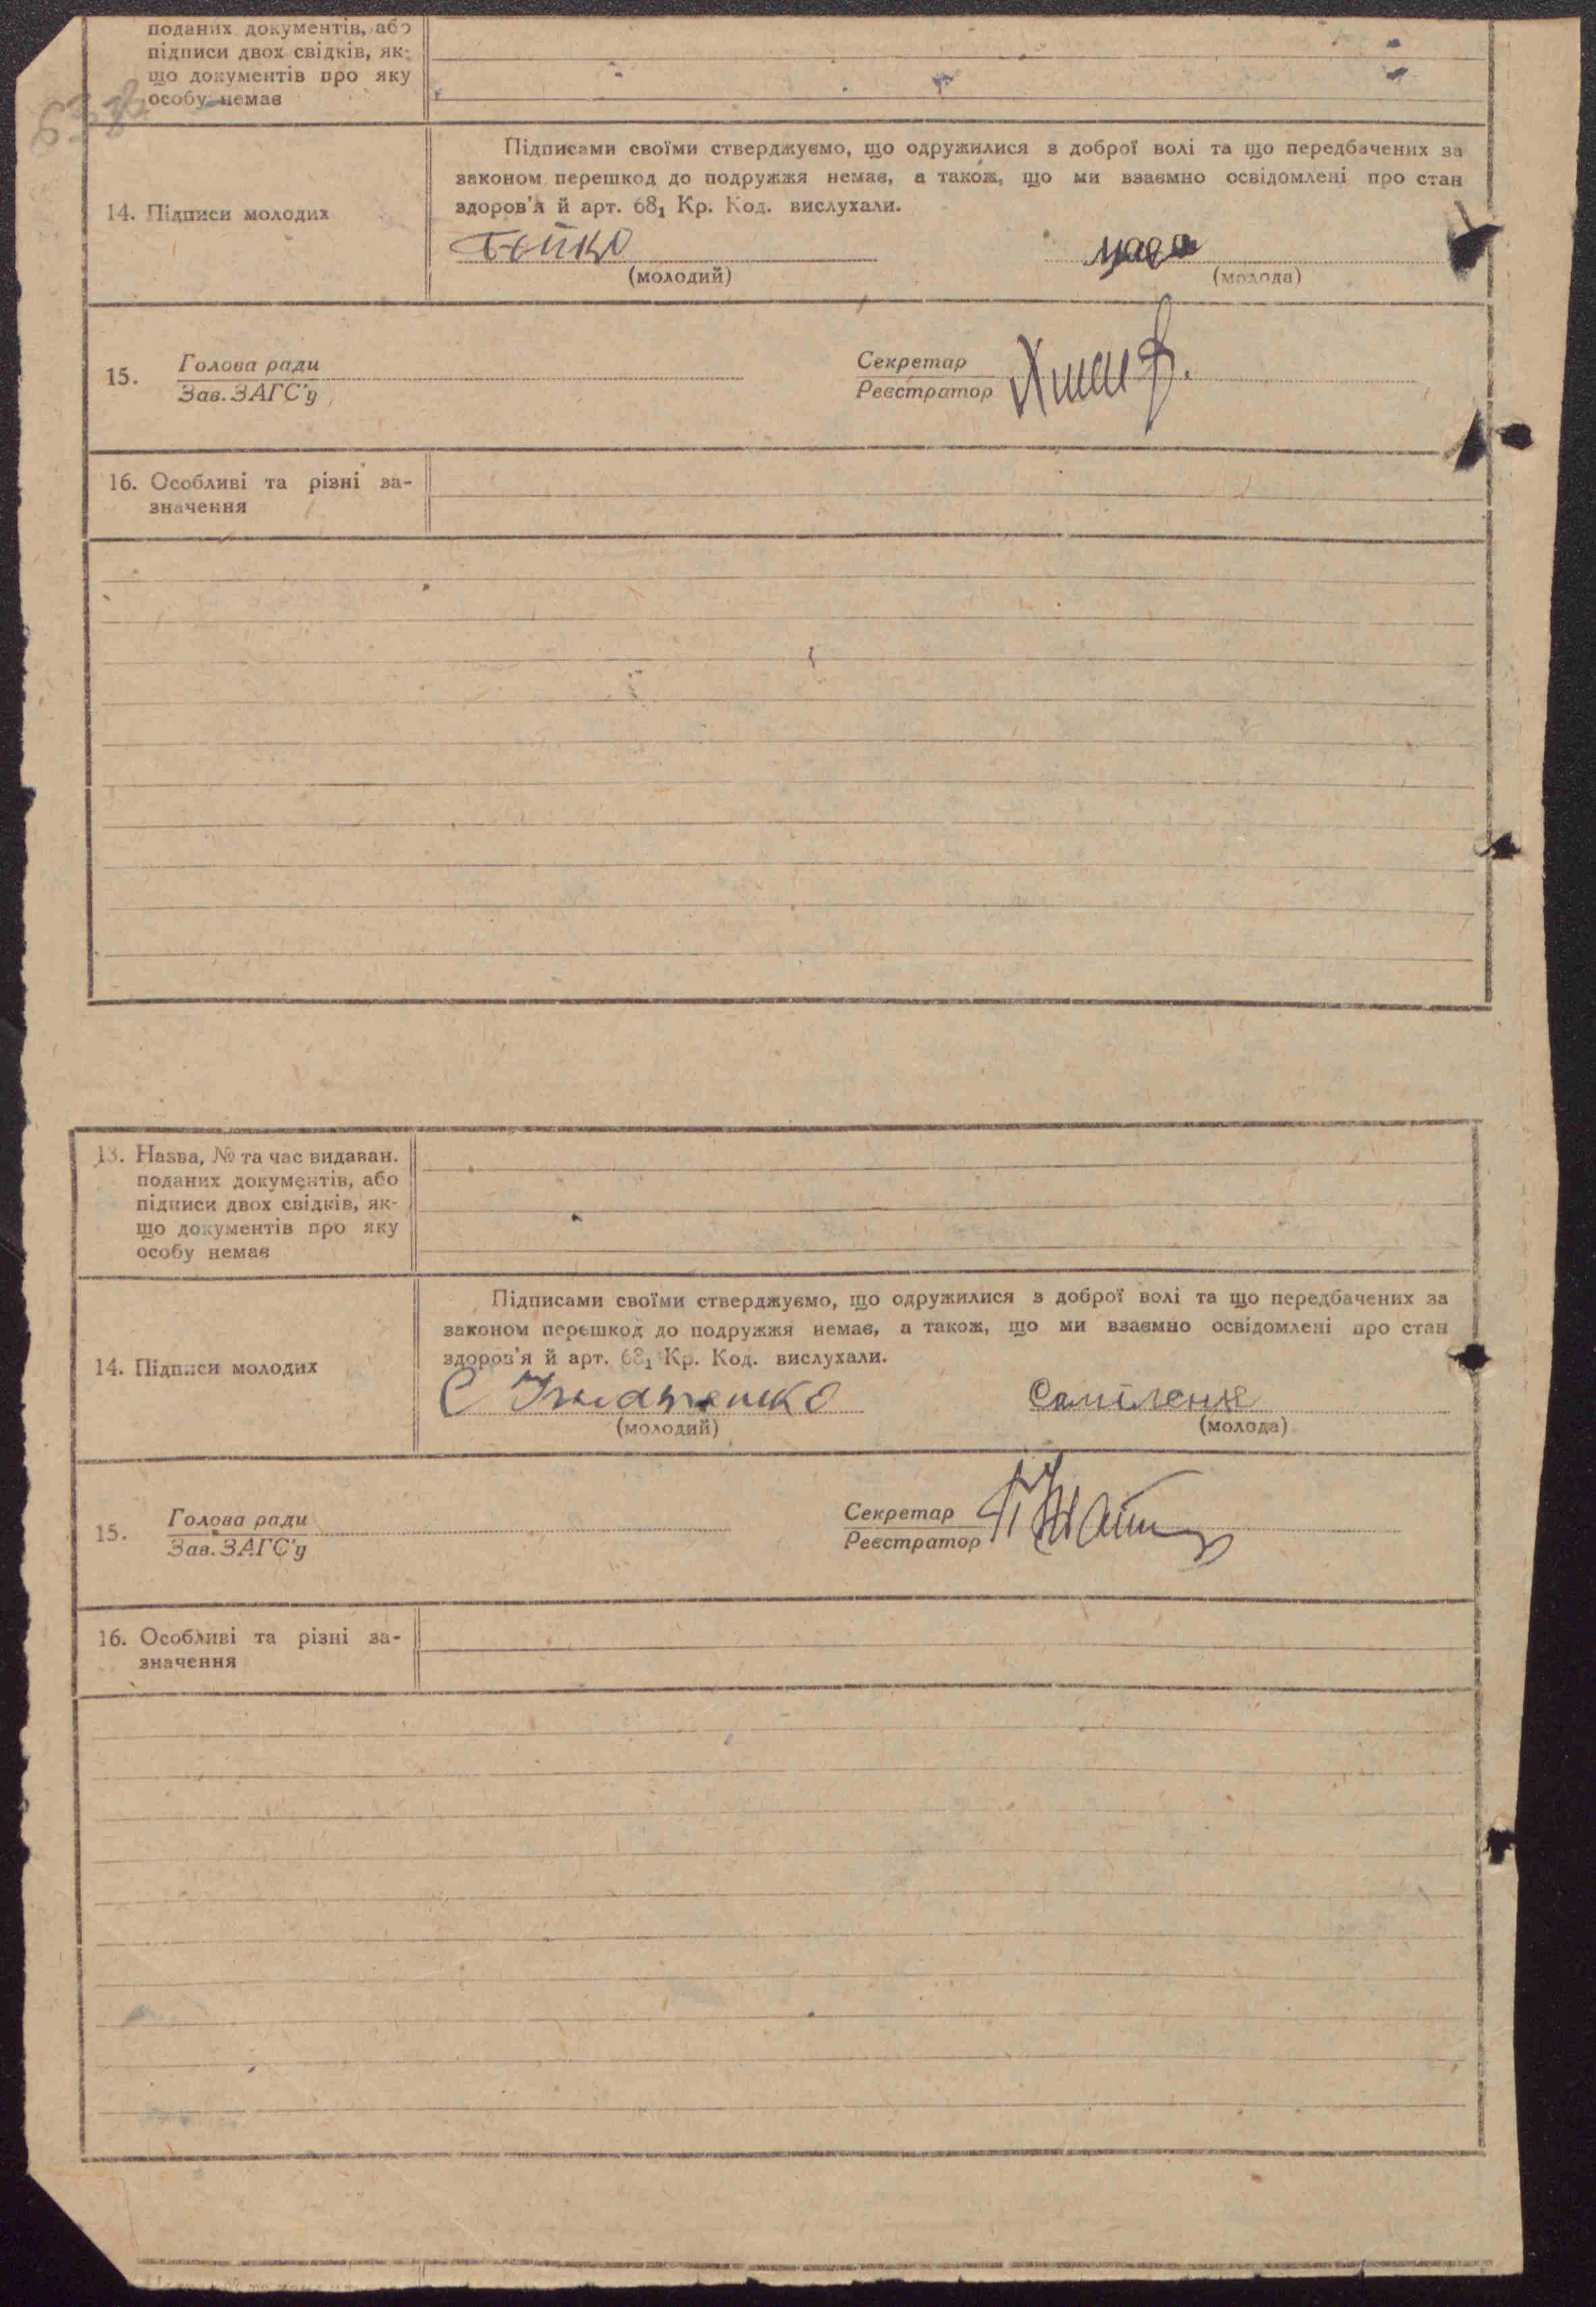 поданих документів, або
підписи двох свідків, як-
що документів про яку
особу немає
Підписами своїми стверджуємо, що одружилися з доброї волі та що передбачених за
законом перешкод до подружжя немає, а також, що ми взаємно освідомлені про стан
здоров'я й арт. 68₁ Кр. Код. вислухали.
14. Підписи молодих
Бойко
(молодий) (молода)
15. Голова ради Секретар
Зав. ЗАГС'у Реєстратор
16. Особливі та різні за-
значення
13. Назва, № та час видаван.
поданих документів, або
підписи двох свідків, як-
що документів про яку
особу немає
Підписами своїми стверджуємо, що одружилися з доброї волі та що передбачених за
законом перешкод до подружжя немає, а також, що ми взаємно освідомлені про стан
здоров'я й арт. 68₁ Кр. Код. вислухали.
14. Підписи молодих
(молодий) (молода)
15. Голова ради Секретар
Зав. ЗАГС'у Реєстратор
16. Особливі та різні за-
значення